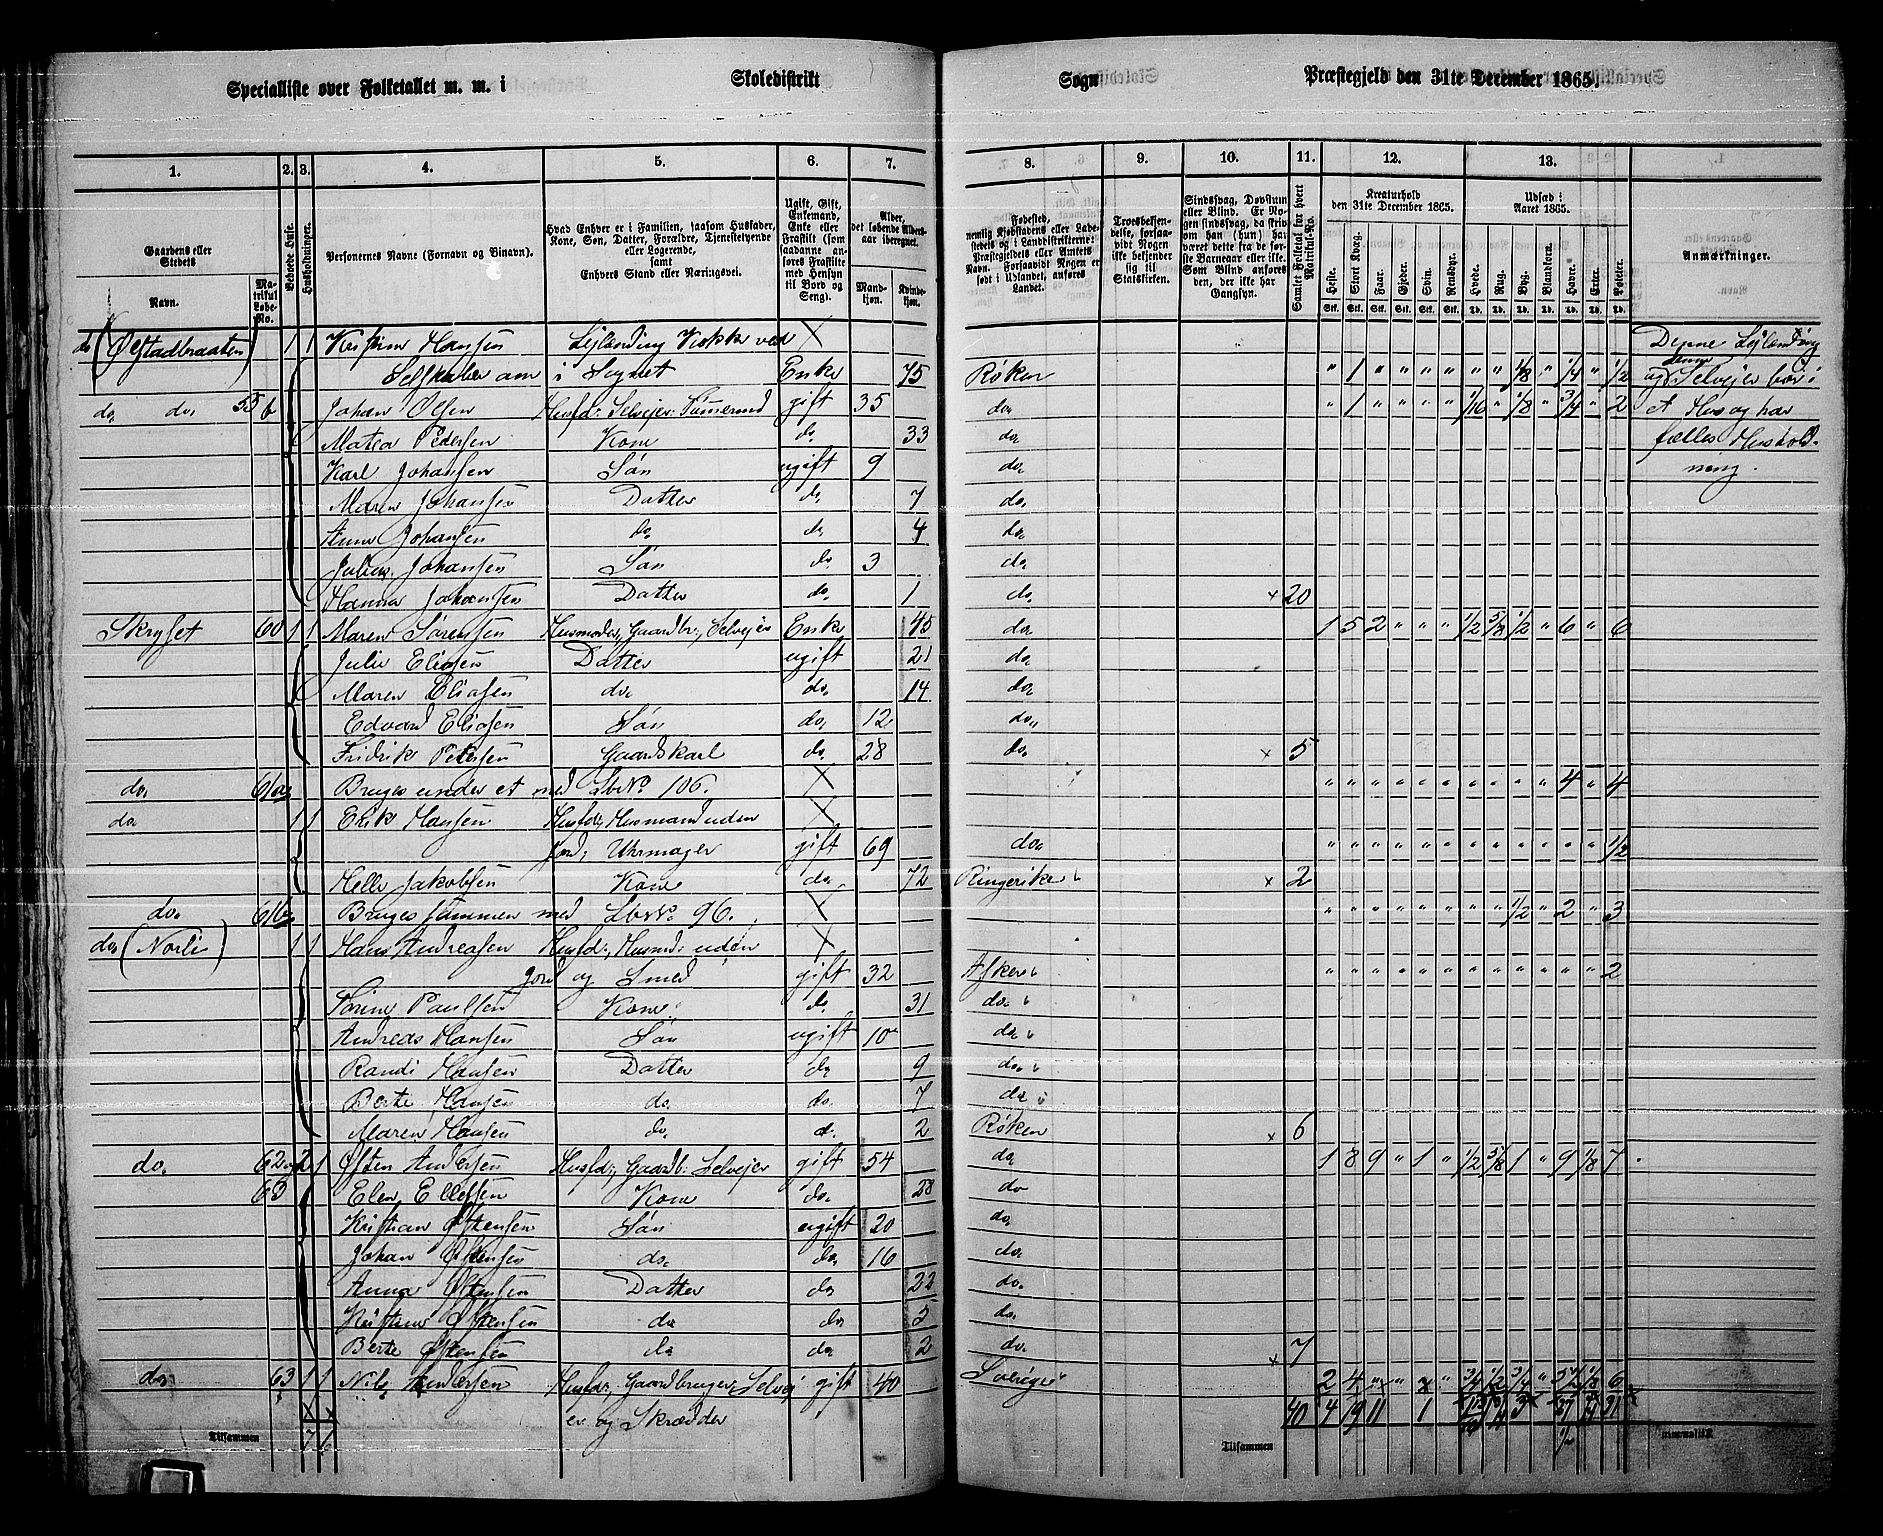 Specialliste over Folketallet m. m. i Skoledistrikt Sogn Præstegjeld den 31te December 1865.
1. 2. 3. 4. 5. 6. 7. 8. 9. 10. 11. 12. 13.
Gaardens eller Stedets
Navn.
Matrikul Løbe-No.
Beboede Huse.
Husholdninger.
Personernes Navne (Fornavn og Binavn).
Hvad Enhver er i Familien, saasom Husfader, Kone, Søn, Datter, Forældre, Tjenestetyende eller Logerende, samt Enhvers Stand eller Næringsvei.
Ugift, Gift, Enkemand, Enke eller Fraskilt (som saadanne anføres Fraskilte med Hensyn til Bord og Seng).
Alder, det løbende Aldersaar iberegnet.
Mandkjøn. Kvindekjøn.
Fødested, nemlig Kjøbstadens eller Ladestedets og i Landdistrikterne: Præstegjeldets eller Amtets Navn. Forsaavidt Nogen er født i Udlandet, anføres Landet.
Troesbekjendelse, forsaavidt Nogen ikke bekjender sig til Statskirken.
Sindssvag, Døvstum eller Blind. Er Nogen sindssvag, da skrives om han (hun) har været dette fra de første Barneaar eller ikke. Som Blind anføres den, der ikke har Gangsyn.
Samlet Folketal for hvert Matrikul-No.
Kreaturhold den 31te December 1865.
Heste. Stort Kvæg. Faar. Gjeder. Svin. Rensdyr.
Udsæd i Aaret 1865.
Hvede. Rug. Byg. Blandkorn. Havre. Erter. Poteter.
Anmærkninger.
do (Østadbraaten) 1 1 Kristine Hansen Lejlending Kokke ved
Selskaber om i Sognet Enke 75 Røken " 1 " " " " " " 1/8 " 1/4 " 1/2
do do 55 b Johan Olsen Husfd: Selvejer Tømermd gift 35 do " 1 " " " " 1/16 " 1/8 " 3/4 " 2
Matea Pedersen Kone do 33 do
Karl Johansen Søn ugift 9 do
Maren Johansen Datter do 7 do
Anne Johansen do do 4 do
Julius Johansen Søn do 3 do
Hanna Johansen Datter do 1 do × 20
Denne Lejlending
og denne Selvejer bor i
et Hus og har
fælles Hushold-
ning.
Skryset 60 1 1 Maren Sørensen Husmoder, Gaardbr:, Selvejer Enke 45 do 1 5 2 " " " 1/2 5/8 1/2 " 6 " 6
Julie Eliasen Datter ugift 21 do
Maren Eliasen do do 14 do
Edvard Eliasen Søn do 12 do
Fridrik Petersen Gaardskarl do 28 do × 5
do 61a Bruges under et med Lb№ 106. " " " " " " " " " " 4 " 4
do 1 1 Erik Hansen Husfd:, Husmand uden
Jord; Uhrmager gift 69 do " " " " " " " " " " " " 1/2
Helle Jakobsen Kone do 72 Ringerike × 2
do 61b Bruges sammen med Lb№ 96. " " " " " " " " 1/2 " 2 " 3
do (Norli) 1 1 Hans Andreasen Husfd:, Husmd: uden
Jord og Smed gift 32 Asker " " " " " " " " " " " " 2
Torine Paulsen Kone do 31 do
Andreas Hansen Søn ugift 10 do
Randi Hansen Datter do 9 do
Berte Hansen do do 7 do
Maren Hansen do do 2 Røken × 6
do 62 2 1 Østen Andersen Husfd:, Gaardb: Selvejer gift 54 do 1 8 9 " 1 " 1/2 5/8 1 " 9 1/8 7
63 Elen Ellefsen Kone do 28 do
Kristian Østensen Søn ugift 20 do
Johan Østensen do do 16 do
Anna Østensen Datter do 22 do
Kristine Østensen do do 5 do
Berte Østensen do do 2 do × 7
do 63 1 1 Nils Andersen Husfdr, Gaardbruger, Selvej gift 40 Sverige 2 4 " " × " 3/4 1/2 3/4 " 5 1/8 6
er og Skrædder 40 4 19 11 1
Tilsammen 7 6 Tilsammen